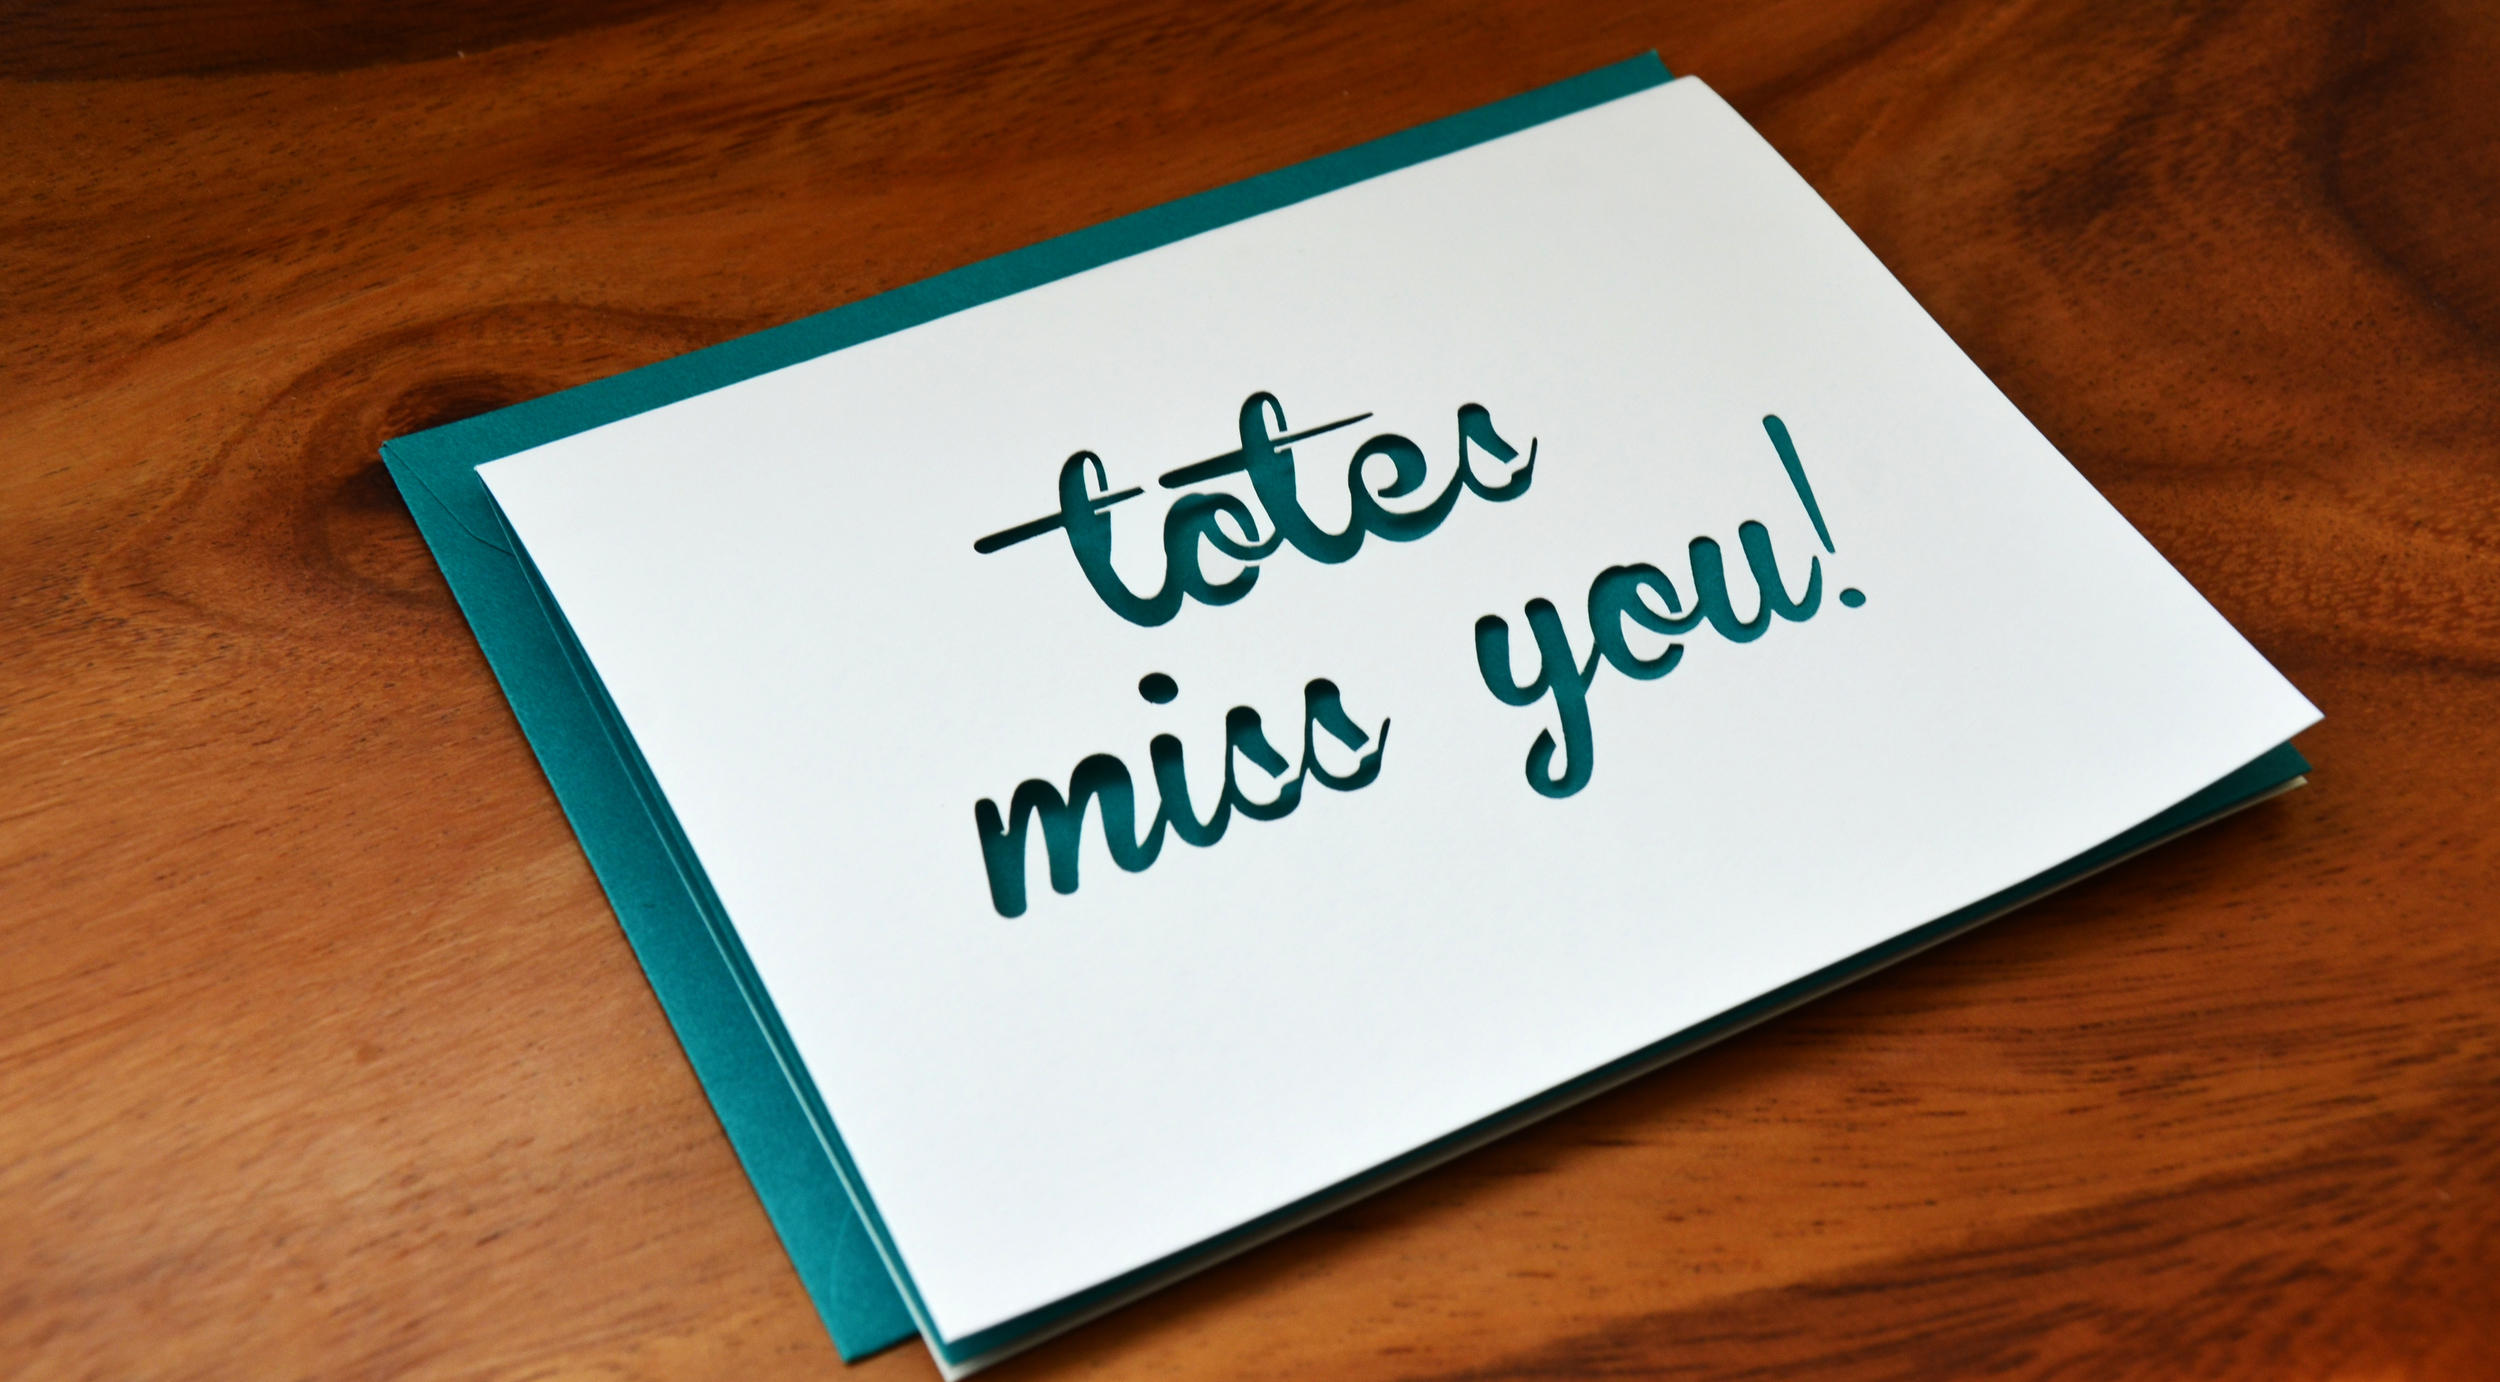 totes
miss you!